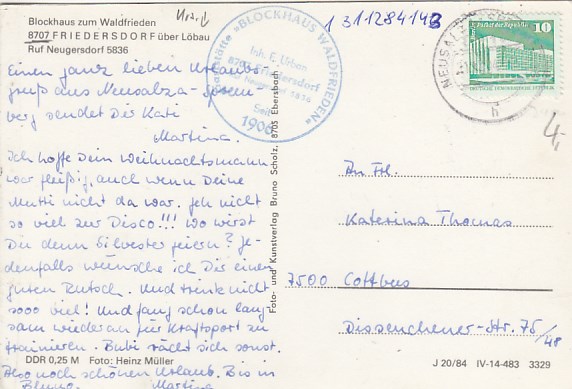 Blockhaus zum Waldfrieden
8707 FRIEDERSDORF über Löbau
Ruf Neugersdorf 5836
1 31128414
Gaststätte »BLOCKHAUS WALDFRIEDEN«
Inh. E. Urban
Seit
1906
NEUSALZA-SPREMBERG
h
10
DEUTSCHE DEMOKRATISCHE REPUBLIK
4,-
Einen ganz lieben Urlaubs-
gruß aus Neusalza-Sprem-
berg sendet Dir Kati
Martina.
Ich hoffe Dein Weihnachtsmann
war fleißig, auch wenn Deine
Mutti nicht da war. Geh nicht
so viel zur Disco!!! Wo wirst
Du denn Silvester feiern? Je-
denfalls wünsche ich Dir einen
guten Rutsch. Und trink nicht
sooo viel! Und fang schon lang-
sam wieder an für Kraftsport zu
trainieren. Bubi rächt sich sonst.
DDR 0,25 M Foto: Heinz Müller
Also noch schönen Urlaub. Bis in
Martina
Foto- und Kunstverlag Bruno Scholz, 8705 Ebersbach
An Frl.
Katerina Thomas
7500 Cottbus
Dissenchener-Str. 75/48
J 20/84 IV-14-483 3329